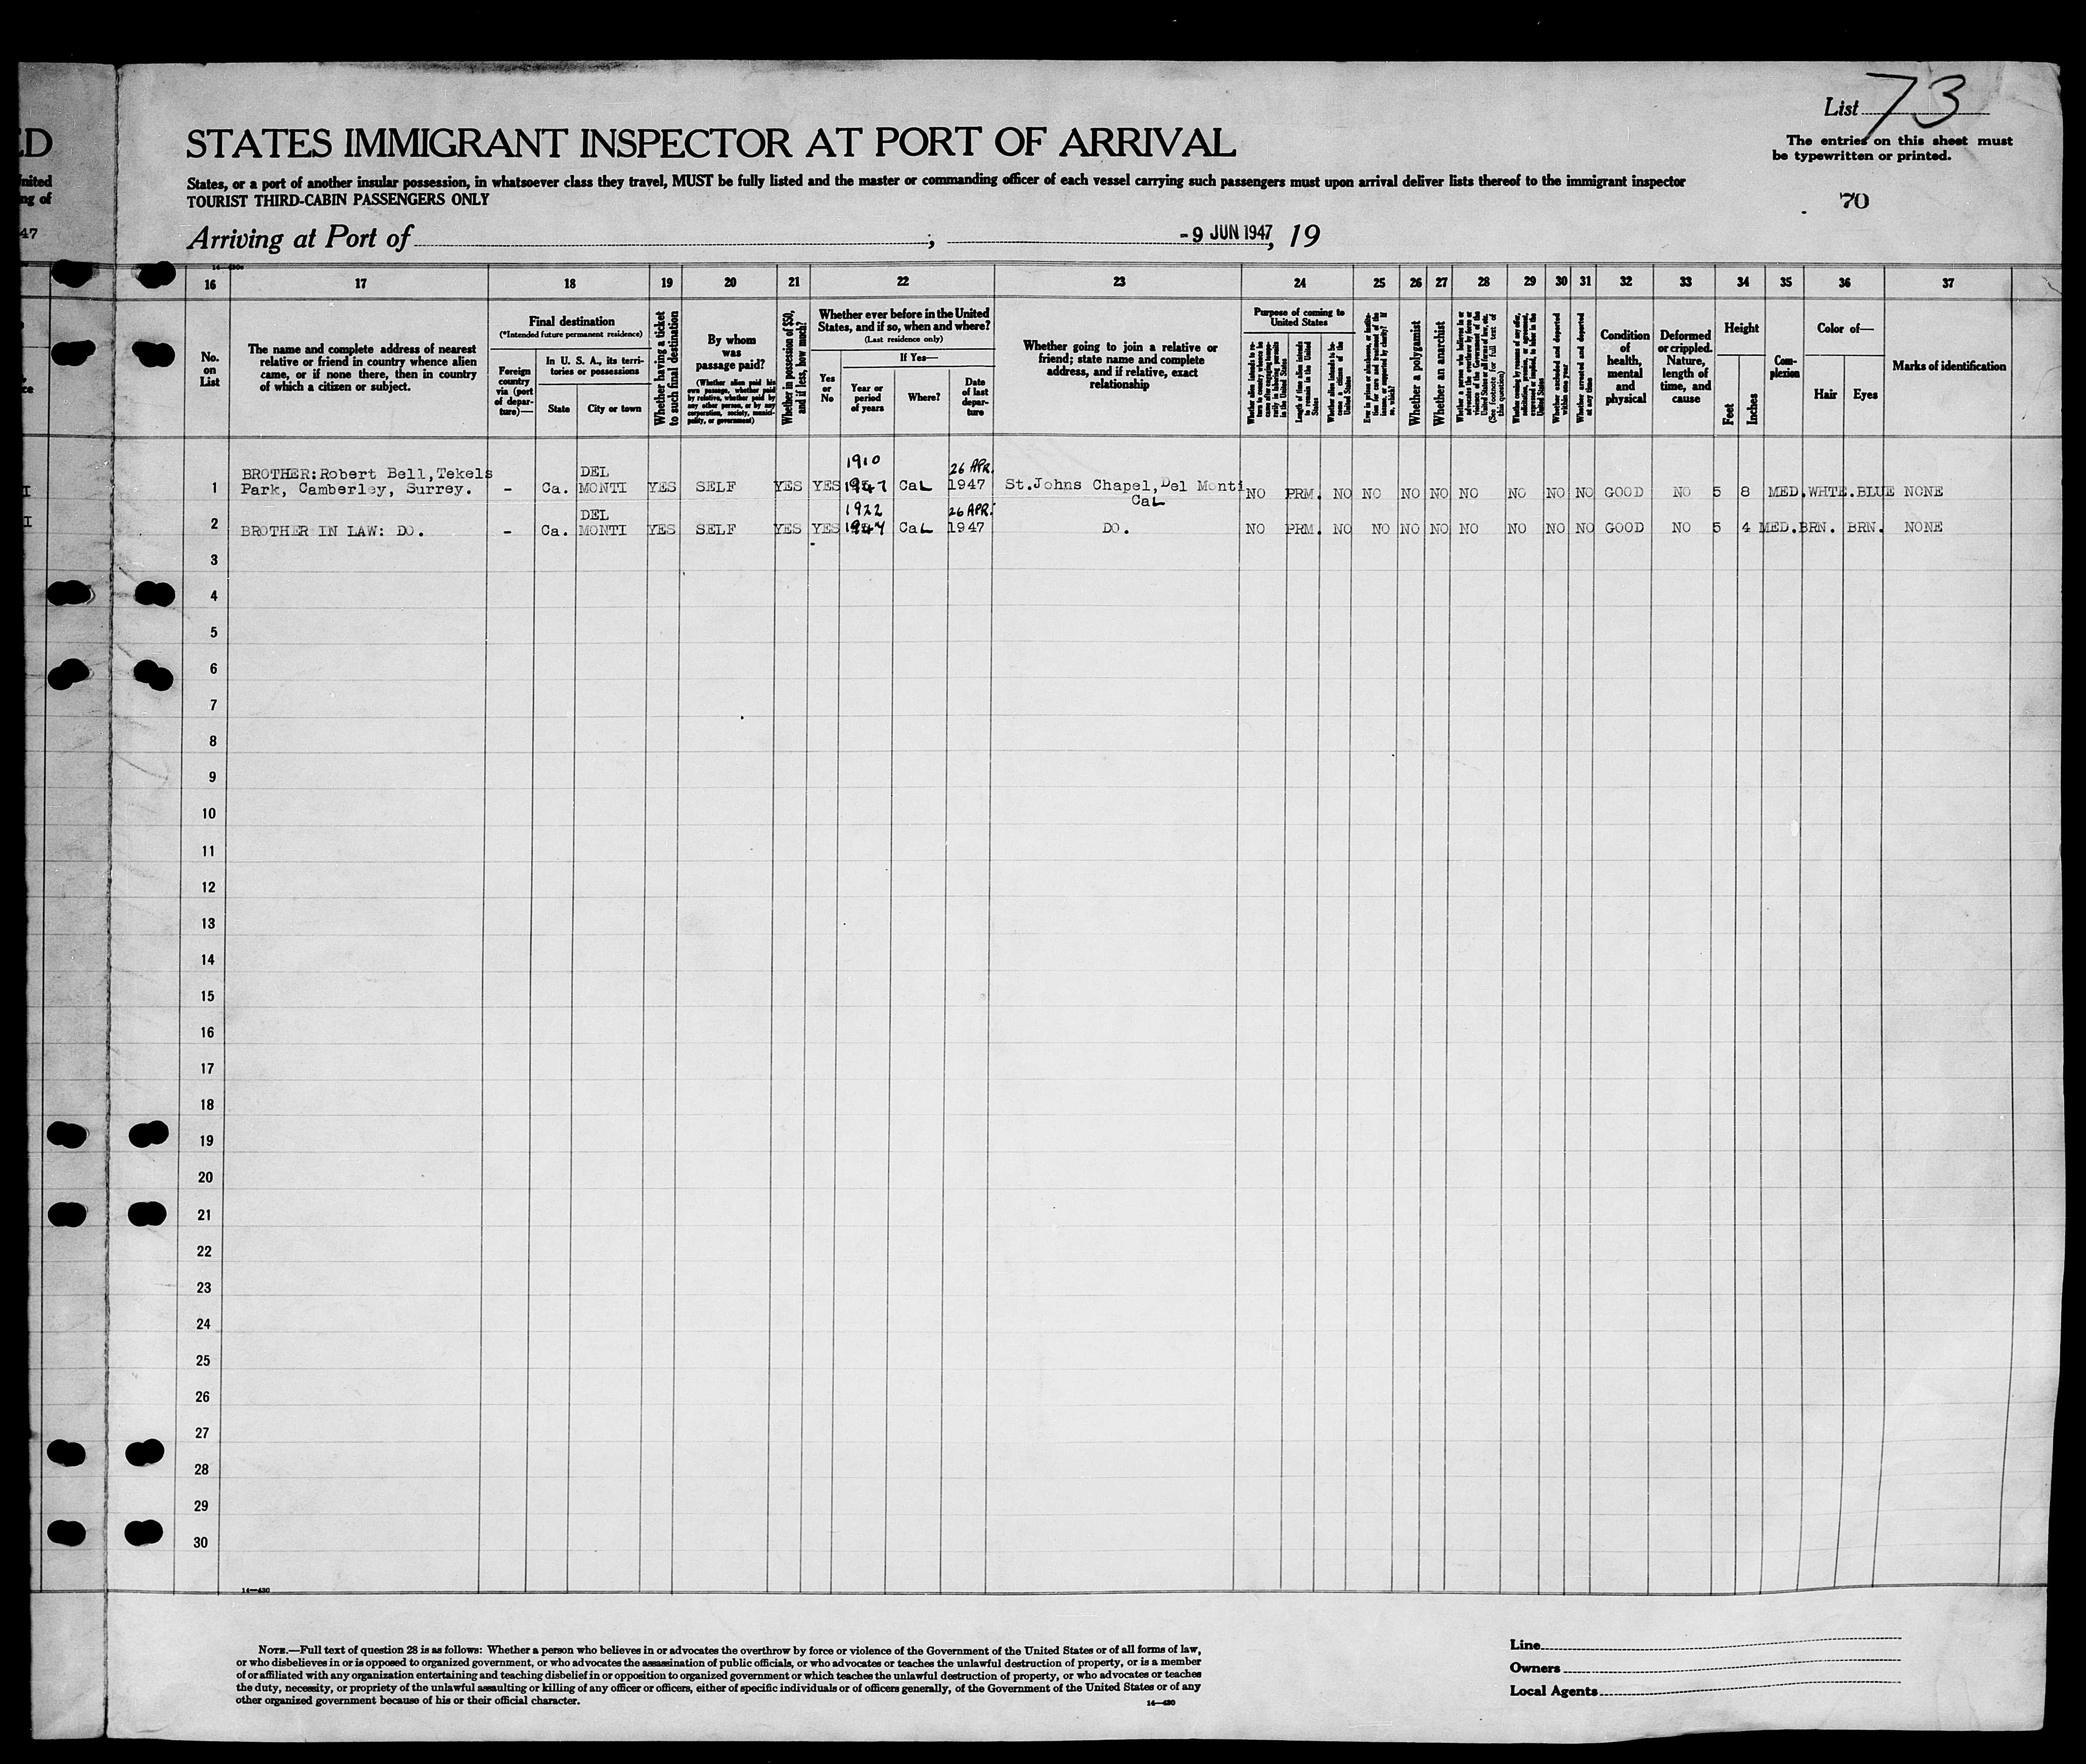 ED
List 73
STATES IMMIGRANT INSPECTOR AT PORT OF ARRIVAL
The entries on this sheet must
be typewritten or printed.
nited
States, or a port of another insular possession, in whatsoever class they travel, MUST be fully listed and the master or commanding officer of each vessel carrying such passengers must upon arrival deliver lists thereof to the immigrant inspector
ng of
TOURIST THIRD-CABIN PASSENGERS ONLY
70
47
Arriving at Port of ; -9 JUN 1947, 19
16 17 18 19 20 21 22 23 24 25 26 27 28 29 30 31 32 33 34 35 36 37
No.
on
List
The name and complete address of nearest
relative or friend in country whence alien
came, or if none there, then in country
of which a citizen or subject.
Final destination
(*Intended future permanent residence)
Foreign
country
via (port
of depar-
ture)—
In U. S. A., its terri-
tories or possessions
State
City or town
Whether having a ticket
to such final destination
By whom
was
passage paid?
(Whether alien paid his
own passage, whether paid by
relative, whether paid by
any other person, or by any
corporation, society, munici-
pality, or government)
Whether in possession of $50,
and if less, how much?
Whether ever before in the United
States, and if so, when and where?
(Last residence only)
Yes
or
No
If Yes—
Year or
period
of years
Where?
Date
of last
depar-
ture
Whether going to join a relative or
friend; state name and complete
address, and if relative, exact
relationship
Purpose of coming to
United States
Length of time alien intends
to remain in the United
States
Whether alien intends to be-
come a citizen of the
United States
Whether a polygamist
Whether an anarchist
(See footnote for full text of
this question)
Whether excluded and deported
within one year
Whether arrested and deported
at any time
Condition
of
health,
mental
and
physical
Deformed
or crippled.
Nature,
length of
time, and
cause
Height
Feet
Inches
Com-
plexion
Color of—
Hair
Eyes
Marks of identification
1 BROTHER:Robert Bell,Tekels
Park, Camberley, Surrey. - Ca. DEL
MONTI YES SELF YES YES 1910
1947 CaL 26 APR.
1947 St.Johns Chapel,Del Monti
CaL NO PRM. NO NO NO NO NO NO NO NO GOOD NO 5 8 MED. WHTE. BLUE NONE
2 BROTHER IN LAW: DO. - Ca. DEL
MONTI YES SELF YES YES 1922
1947 CaL 26 APR.
1947 DO. NO PRM. NO NO NO NO NO NO NO NO GOOD NO 5 4 MED. BRN. BRN. NONE
3
4
5
6
7
8
9
10
11
12
13
14
15
16
17
18
19
20
21
22
23
24
25
26
27
28
29
30
14—430
NOTE.—Full text of question 28 is as follows: Whether a person who believes in or advocates the overthrow by force or violence of the Government of the United States or of all forms of law,
or who disbelieves in or is opposed to organized government, or who advocates the assassination of public officials, or who advocates or teaches the unlawful destruction of property, or is a member
of or affiliated with any organization entertaining and teaching disbelief in or opposition to organized government or which teaches the unlawful destruction of property, or who advocates or teaches
the duty, necessity, or propriety of the unlawful assaulting or killing of any officer or officers, either of specific individuals or of officers generally, of the Government of the United States or of any
other organized government because of his or their official character.
14—430
Line
Owners
Local Agents